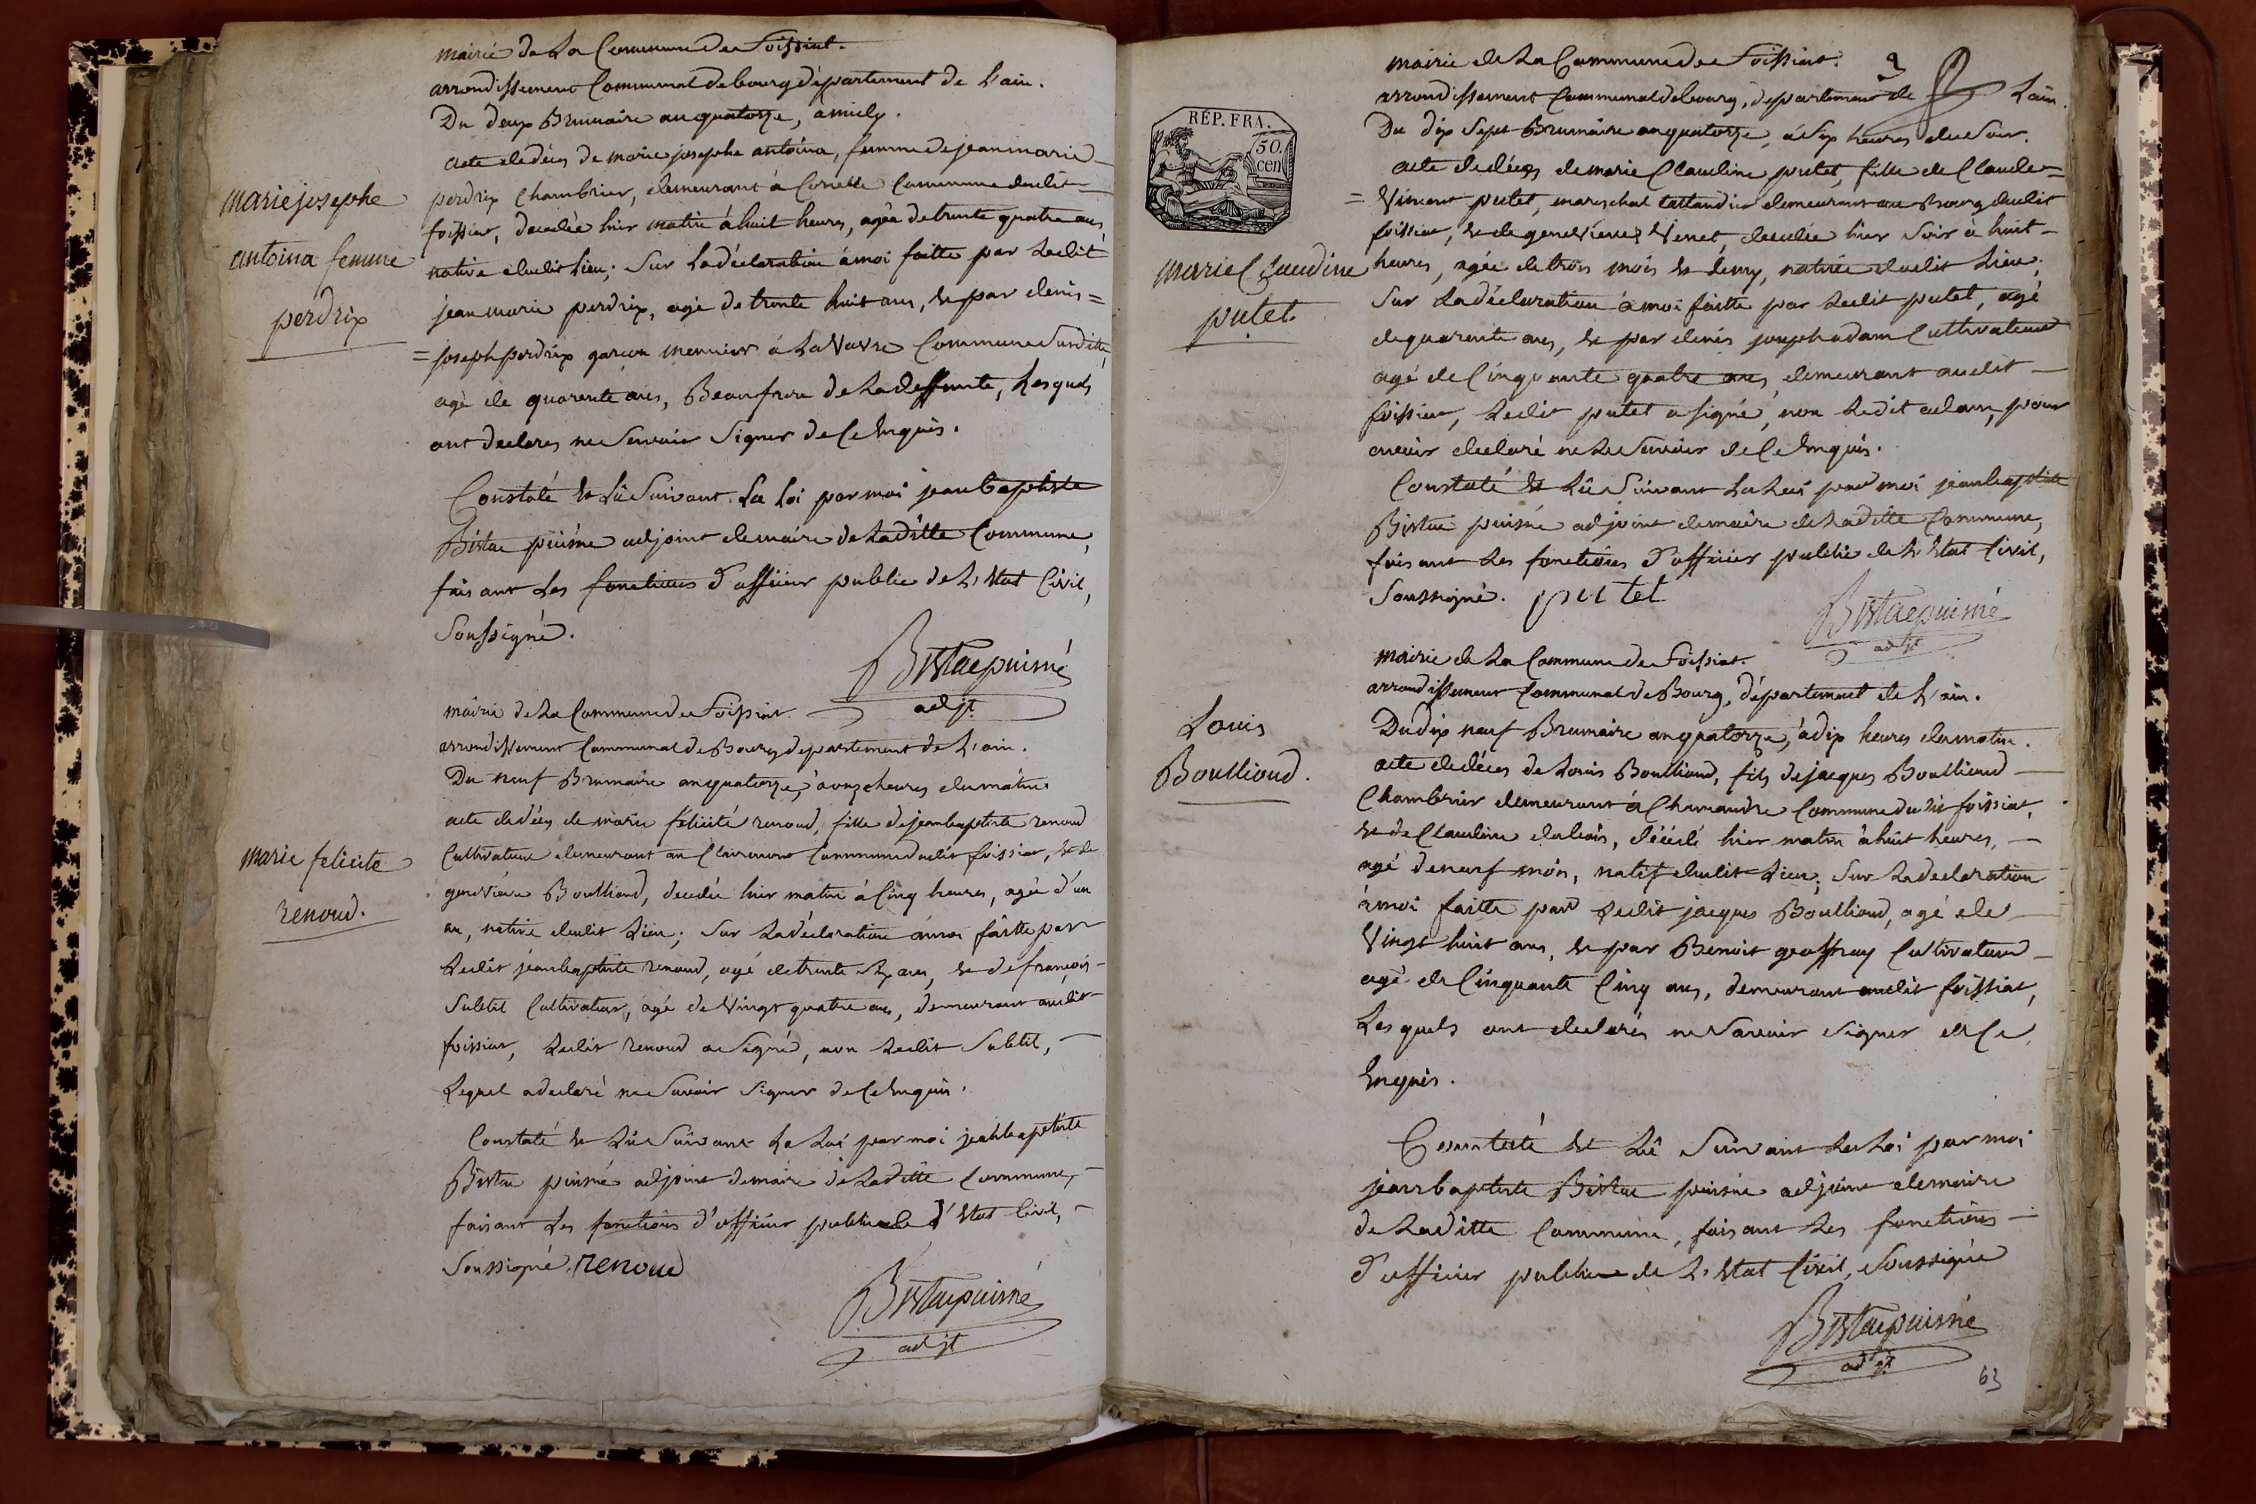 mairie de La Commune de Foissiat.
arrondissement Communal de bourg département de L'ain.
Du deux Brumaire an quatorze, à midy.
acte de décès de marie josephe antoina, femme de jean marie
perdrix Chambrier, demeurant à Cornelle Commune dudit
foissiat, décédée hier matin à huit heures, agée de trente quatre ans
native dudit Lieu; Sur La déclaration à moi faitte par Ledit
jean marie perdrix, agé de trente huit ans, et par denis =
= joseph perdrix garçon meunier à La Vavre Commune Susditte,
agé de quarente ans, Beaufrere de La deffunte, Lesquels
ont declarés ne Savoir Signer de Ce Enquis.
Constaté et Lû Suivant La Loi par moi jean baptiste
Bistac puisné adjoint de maire de Laditte Commune,
faisant Les fonctions d'officier public de L'Etat Civil,
Soussigné.
Bistac puisné
adjt
marie josephe
antoina femme
perdrix
mairie de La Commune de Foissiat.
arrondissement Communal de Bourg département de L'ain.
Du neuf Brumaire an quatorze, à onze heures du matin.
acte de décès de marie felicité renoud, fille de jean baptiste renoud
Cultivateur demeurant au Clairmont Commune dudit foissiat, et de
geneviève Boullioud, decedée hier matin à Cinq heures, agée d'un
an, native dudit Lieu; Sur La déclaration à moi faitte par
Ledit jean baptiste renoud, agé de trente Six ans, et de françois
Subtil Cultivateur, agé de Vingt quatre ans, demeurant audit
foissiat, Ledit renoud a Signé, non Ledit Subtil,
Lequel a declaré ne Savoir Signer de Ce Enquis.
Constaté et Lû Suivant La Loi par moi jean baptiste
Bistac puisné adjoint de maire de Laditte Commune,
faisant Les fonctions d'officier public de l'Etat Civil,
Soussigné. renoud
Bistac puisné
adjt
marie felicité
renoud.
mairie de La Commune de Foissiat.
arrondissement Communal de bourg, departement de L'ain
Du dix Sept Brumaire an quatorze, à Six heures du Soir.
acte de décès de marie Claudine putet, fille de Claude =
= Vincent putet, mareschal taillandier demeurant au Bourg dudit
foissiat, et de genevieve Venet, decedée hier Soir à huit
heures, agée de trois mois et demy, native dudit Lieu;
Sur La déclaration à moi faitte par Ledit putet, agé
de quarente ans, et par denis joseph adam Cultivateur
agé de Cinquante quatre ans, demeurant audit
foissiat, Ledit putet a signé, non Ledit adam, pour
avoir declaré ne Le Savoir de Ce Enquis.
Constaté et Lû Suivant La Loi par moi jean baptiste
Bistac puisné adjoint de maire de Laditte Commune,
faisant Les fonctions d'officier public de L'Etat Civil,
Soussigné. putet
Bistac puisné
adjt
RÉP. FRA.
50.
cen
marie Claudine
putet.
mairie de La Commune de Foissiat.
arrondissement Communal de Bourg, département de L'ain.
Du dix neuf Brumaire an quatorze, à dix heures du matin.
acte de décès de Louis Boullioud, fils de jacques Boullioud
Chambrier demeurant à Chamandre Commune dudit foissiat,
et de Claudine, décédé hier matin à huit heures,
agé de neuf mois, natif dudit Lieu; Sur La declaration
à moi faitte par Ledit jacques Boullioud, agé de
Vingt huit ans, et par Benoit geoffray Cultivateur
agé de Cinquante Cinq ans, demeurant audit foissiat,
Lesquels ont declarés ne Savoir Signer de Ce
Enquis.
Constaté et Lû Suivant La Loi par moi
jean baptiste Bistac puisné adjoint de maire
de Laditte Commune, faisant Les fonctions
d'officier public de L'Etat Civil, Soussigné
Bistac puisné
adjt
Louis
Boullioud.
63